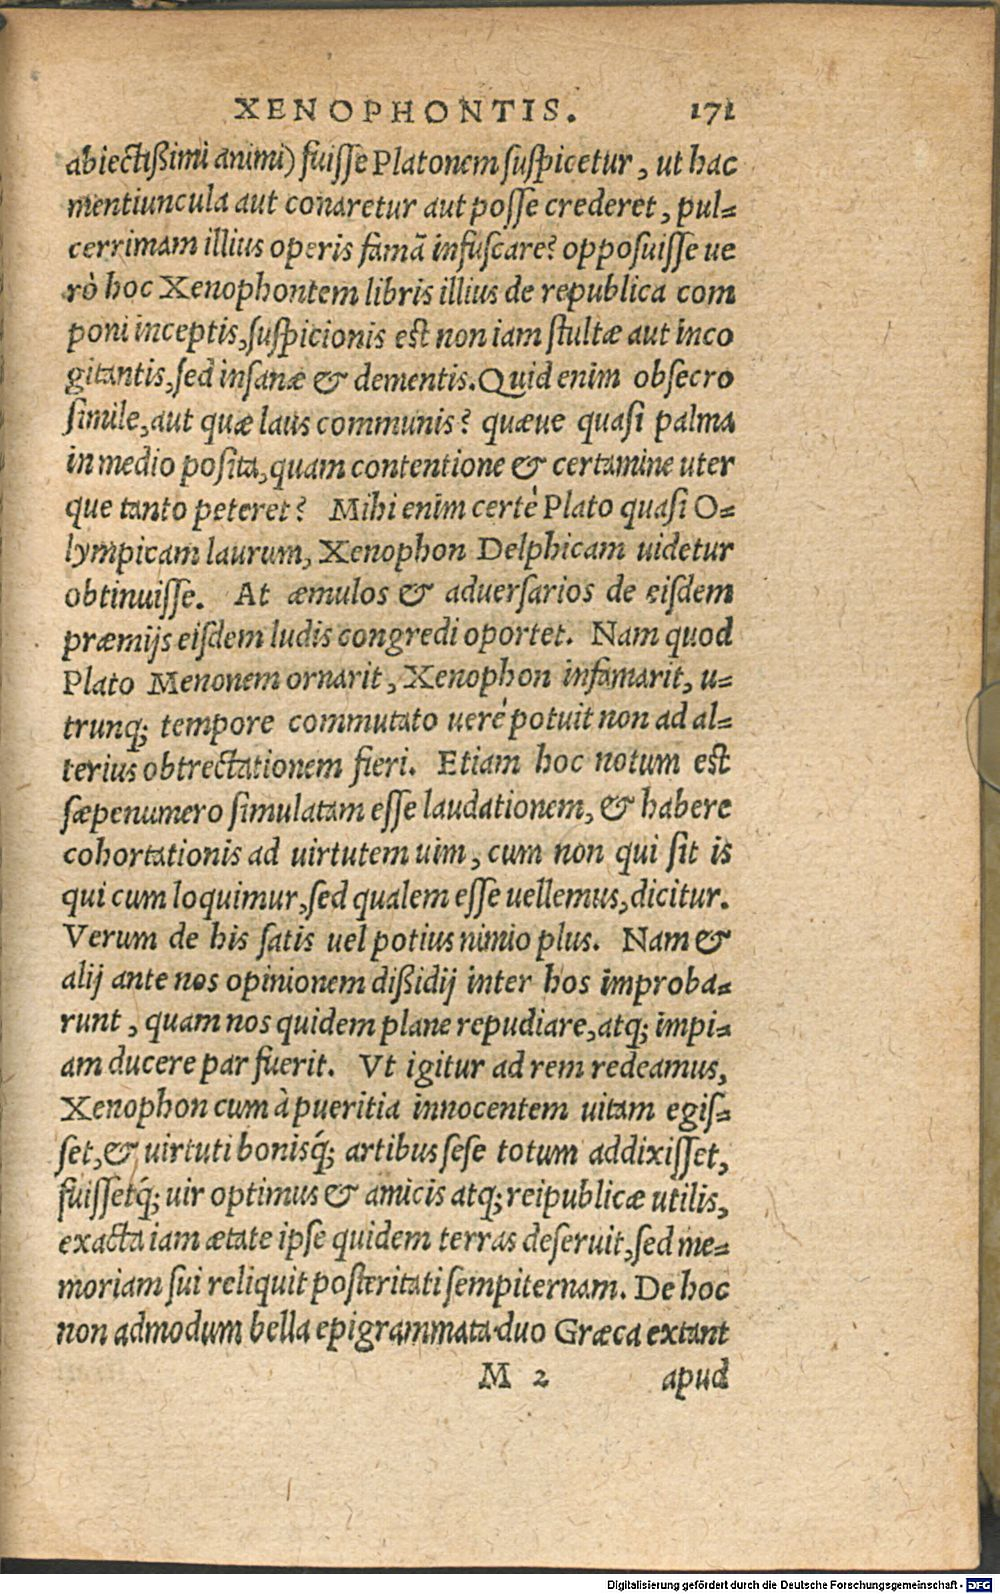 XENOPHONTIS. 171
abiectißimi animi) fuisse Platonem suspicetur, ut hac
mentiuncula aut conaretur aut posse crederet, pul=
cerrimam illius operis famã infuscare? opposuisse ue
rò hoc Xenophontem libris illius de republica com
poni inceptis, suspicionis est non iam stultæ aut inco
gitantis, sed insanæ & dementis. Quid enim obsecro
simile, aut quæ laus communis? quæue quasi palma
in medio posita, quam contentione & certamine uter
que tanto peteret? Mihi enim certè Plato quasi O=
lympicam laurum, Xenophon Delphicam uidetur
obtinuisse. At æmulos & aduersarios de eisdem
præmijs eisdem ludis congredi oportet. Nam quod
Plato Menonem ornarit, Xenophon infamarit, u=
trunq; tempore commutato uerè potuit non ad al=
terius obtrectationem fieri. Etiam hoc notum est
sæpenumero simulatam esse laudationem, & habere
cohortationis ad uirtutem uim, cum non qui sit is
qui cum loquimur, sed qualem esse uellemus, dicitur.
Verum de his satis uel potius nimio plus. Nam &
alij ante nos opinionem dißidij inter hos improba=
runt, quam nos quidem plane repudiare, atq; impi=
am ducere par fuerit. Vt igitur ad rem redeamus,
Xenophon cum à pueritia innocentem uitam egis=
set, & uirtuti bonisq́; artibus sese totum addixisset,
fuissetq́; uir optimus & amicis atq; reipublicæ utilis,
exacta iam ætate ipse quidem terras deseruit, sed me=
moriam sui reliquit posteritati sempiternam. De hoc
non admodum bella epigrammata duo Græca extant
M 2 apud
Digitalisierung gefördert durch die Deutsche Forschungsgemeinschaft - DFG